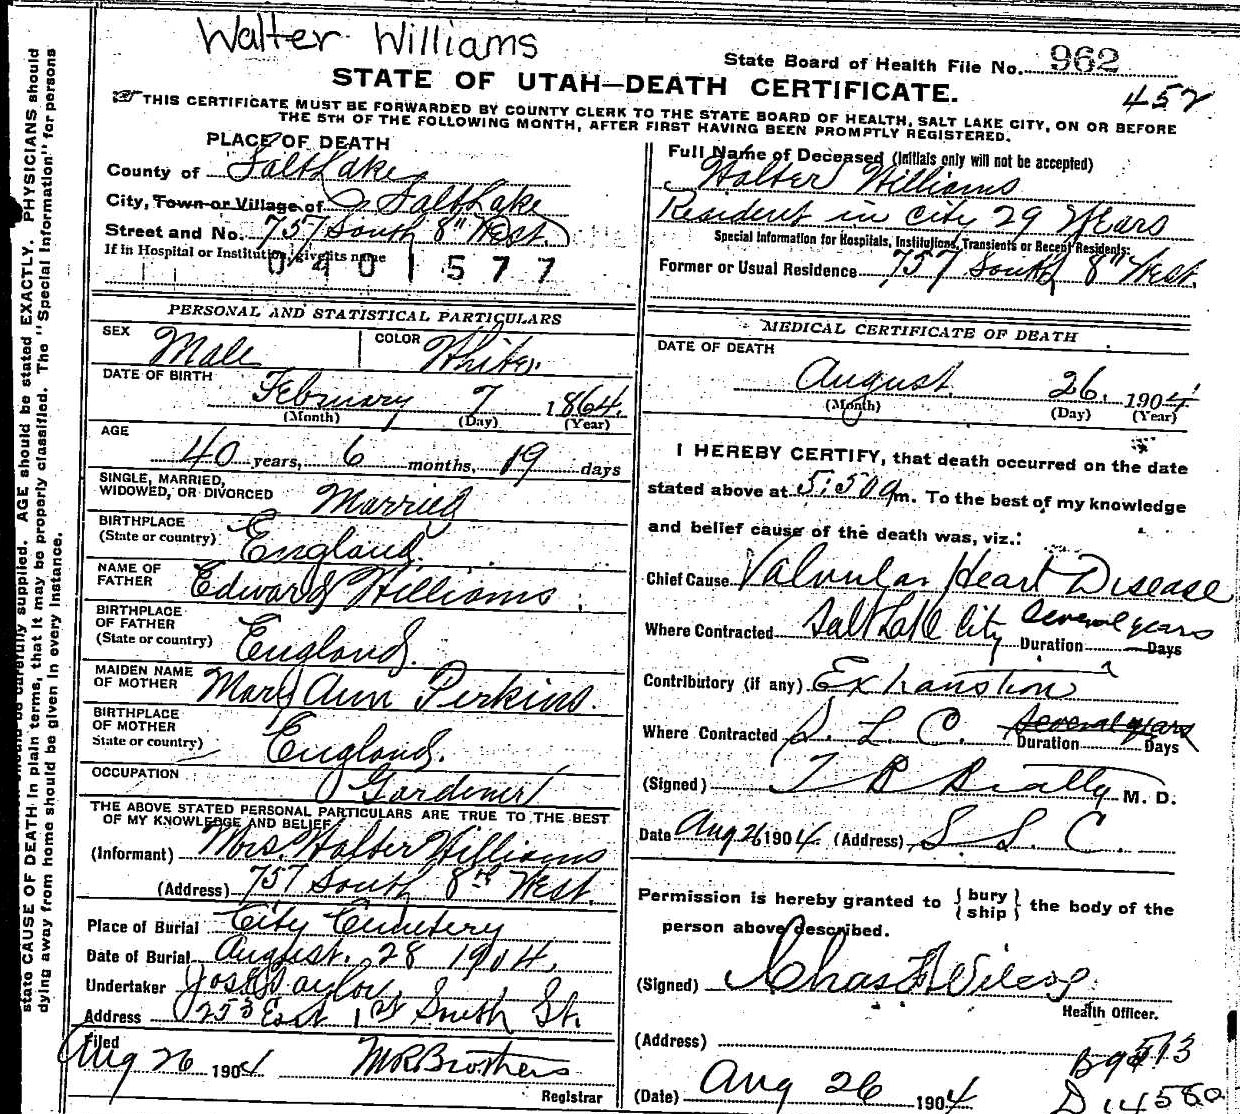 Walter Williams
State Board of Health File No. 962
STATE OF UTAH—DEATH CERTIFICATE.
452
THIS CERTIFICATE MUST BE FORWARDED BY COUNTY CLERK TO THE STATE BOARD OF HEALTH, SALT LAKE CITY, ON OR BEFORE
THE 5TH OF THE FOLLOWING MONTH, AFTER FIRST HAVING BEEN PROMPTLY REGISTERED.
PLACE OF DEATH
County of Salt Lake
City, Town or Village of Salt Lake
Street and No. 757 South 8" West.
If in Hospital or Institution, give its name
0401577
PERSONAL AND STATISTICAL PARTICULARS
SEX Male COLOR White.
DATE OF BIRTH February 7 1864.
(Month) (Day) (Year)
AGE
40 years, 6 months, 19 days
SINGLE, MARRIED,
WIDOWED, OR DIVORCED Married
BIRTHPLACE
(State or country) England.
NAME OF
FATHER Edward Williams.
BIRTHPLACE
OF FATHER
(State or country) England.
MAIDEN NAME
OF MOTHER Mary Ann Perkins.
BIRTHPLACE
OF MOTHER
State or country) England.
OCCUPATION Gardiner
THE ABOVE STATED PERSONAL PARTICULARS ARE TRUE TO THE BEST
OF MY KNOWLEDGE AND BELIEF
(Informant) Mrs. Walter Williams
(Address) 757 South 8th West.
Place of Burial City Cemetery
Date of Burial August. 28 1904.
Undertaker Jos E Taylor
Address 253 East 1st South St.
Filed
Aug 26 1904 M R Brothers
Registrar
Full Name of Deceased (Initials only will not be accepted)
Walter Williams
Resident in city 29 Years
Special Information for Hospitals, Institutions, Transients or Recent Residents:
Former or Usual Residence 757 South 8" West.
MEDICAL CERTIFICATE OF DEATH
DATE OF DEATH
August. 26. 1904
(Month) (Day) (Year)
I HEREBY CERTIFY, that death occurred on the date
stated above at 5:50 a m. To the best of my knowledge
and belief cause of the death was, viz.:
Chief Cause Valvular Heart Disease
Where Contracted Salt Lake City Duration Several years Days
Contributory (if any) Exhaustion
Where Contracted S. L. C. Duration Several years Days
(Signed) T B Beatty M. D.
Date Aug 26 1904. (Address) S. L. C.
Permission is hereby granted to { bury
ship } the body of the
person above described.
(Signed) Chas
Health Officer.
(Address)
(Date) Aug 26 1904
513
D 14580
state CAUSE OF DEATH in plain terms, that it may be properly classified. The "Special Information" for persons
dying away from home should be given in every instance.
carefully supplied. AGE should be stated EXACTLY. PHYSICIANS should